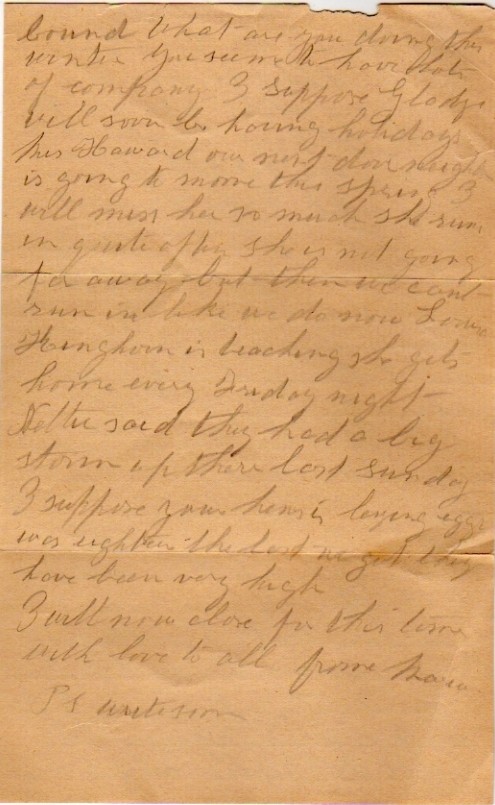 bound What are you doing this
winter You seem to have lots
of company I suppose Gladys
will soon be having holidays
Mrs Howard our next door neighb
is going to move this spring I
will miss her so much she runs
in quite often she is not going
far away but then we cant
run in like we do now
Kinghorn is teaching she gets
home every Friday night
Nettie said they had a big
storm up there last Sunday
I suppose your hens is laying eggs
was eighteen the last we got they
have been very high
I will now close for this time
with love to all from
PS write soon